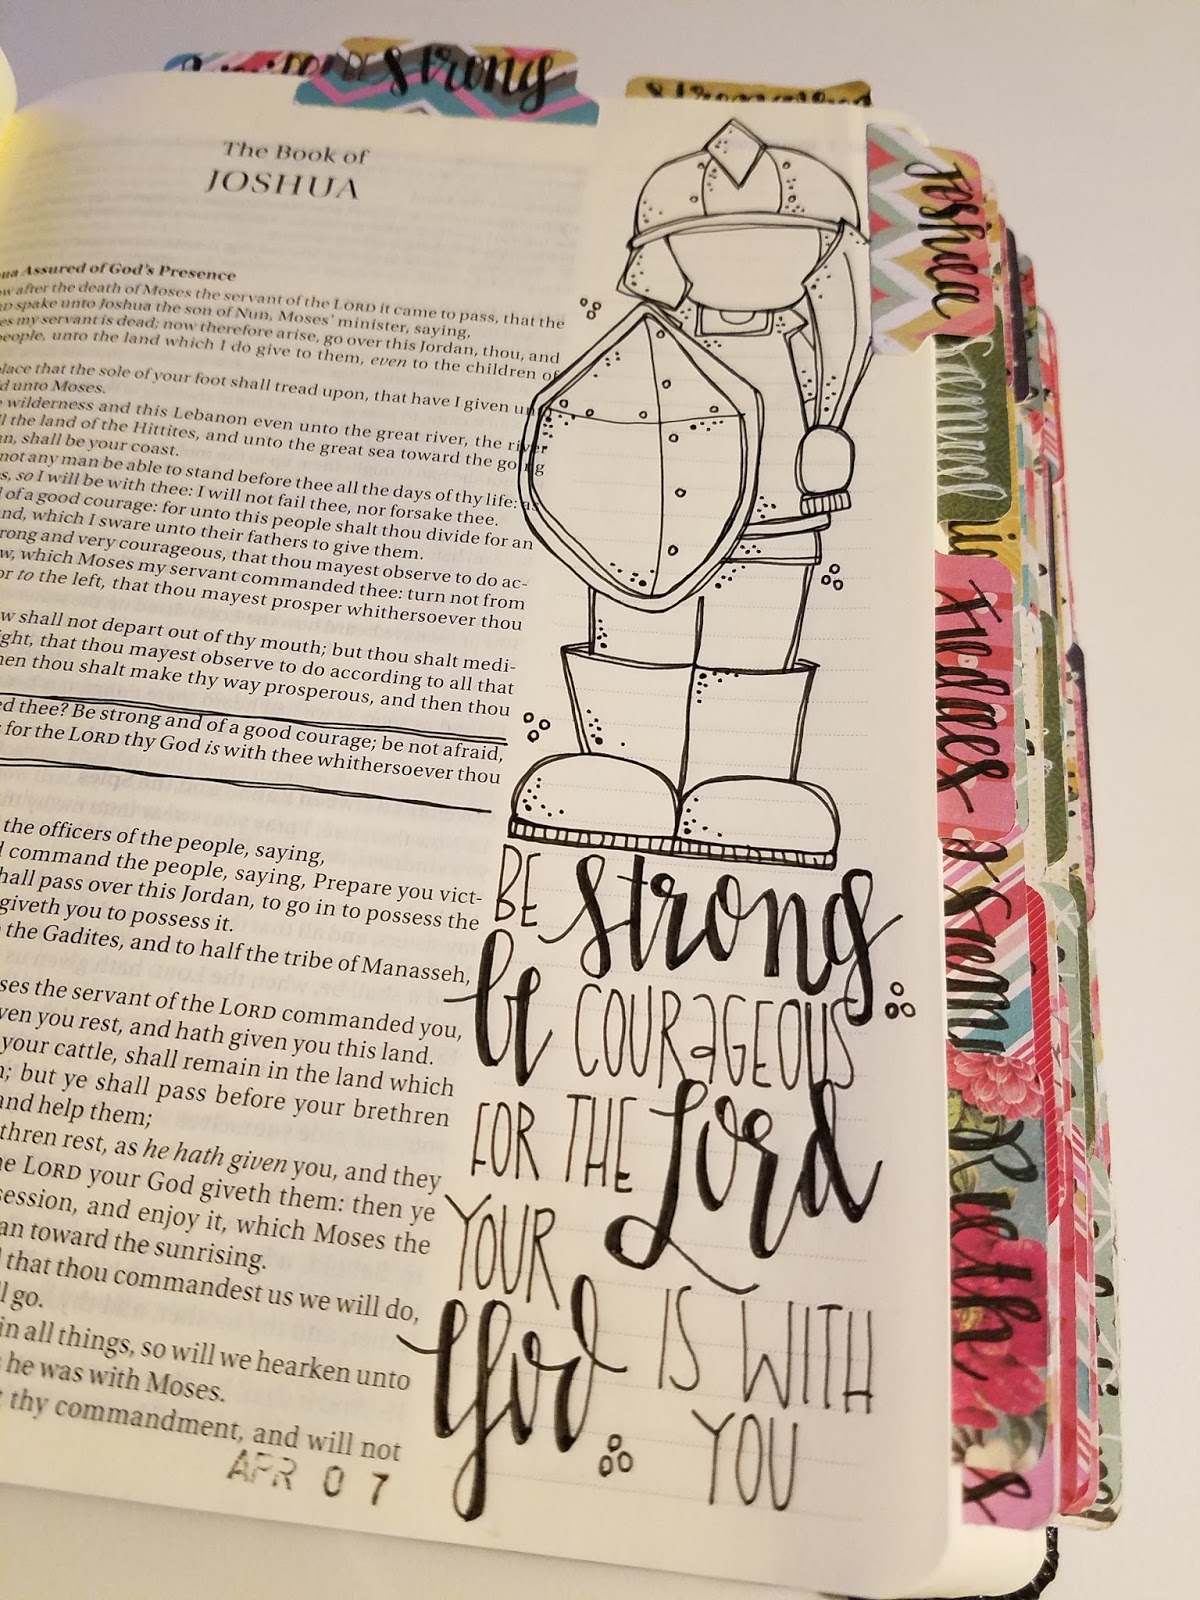 BE strong
The Book of
JOSHUA
ua Assured of God's Presence
w after the death of Moses the servant of the LORD it came to pass, that the
spake unto Joshua the son of Nun, Moses' minister, saying,
es my servant is dead; now therefore arise, go over this Jordan, thou, and
people, unto the land which I do give to them, even to the children of
lace that the sole of your foot shall tread upon, that have I given un
d unto Moses.
e wilderness and this Lebanon even unto the great river, the river
ll the land of the Hittites, and unto the great sea toward the going
n, shall be your coast.
not any man be able to stand before thee all the days of thy life: as
s, so I will be with thee: I will not fail thee, nor forsake thee.
d of a good courage: for unto this people shalt thou divide for an
nd, which I sware unto their fathers to give them.
rong and very courageous, that thou mayest observe to do ac-
w, which Moses my servant commanded thee: turn not from
or to the left, that thou mayest prosper whithersoever thou
w shall not depart out of thy mouth; but thou shalt medi-
ight, that thou mayest observe to do according to all that
hen thou shalt make thy way prosperous, and then thou
ed thee? Be strong and of a good courage; be not afraid,
: for the LORD thy God is with thee whithersoever thou
the officers of the people, saying,
d command the people, saying, Prepare you vict-
hall pass over this Jordan, to go in to possess the
giveth you to possess it.
the Gadites, and to half the tribe of Manasseh,
ses the servant of the LORD commanded you,
ven you rest, and hath given you this land.
your cattle, shall remain in the land which
n; but ye shall pass before your brethren
and help them;
thren rest, as he hath given you, and they
he LORD your God giveth them: then ye
session, and enjoy it, which Moses the
an toward the sunrising.
l that thou commandest us we will do,
ll go.
in all things, so will we hearken unto
s he was with Moses.
t thy commandment, and will not
APR 07
BE strong
be COURAGEOUS
FOR THE Lord
YOUR
God IS WITH
YOU
Joshua
Samuel
Judges
&
Samu
Ruth
&